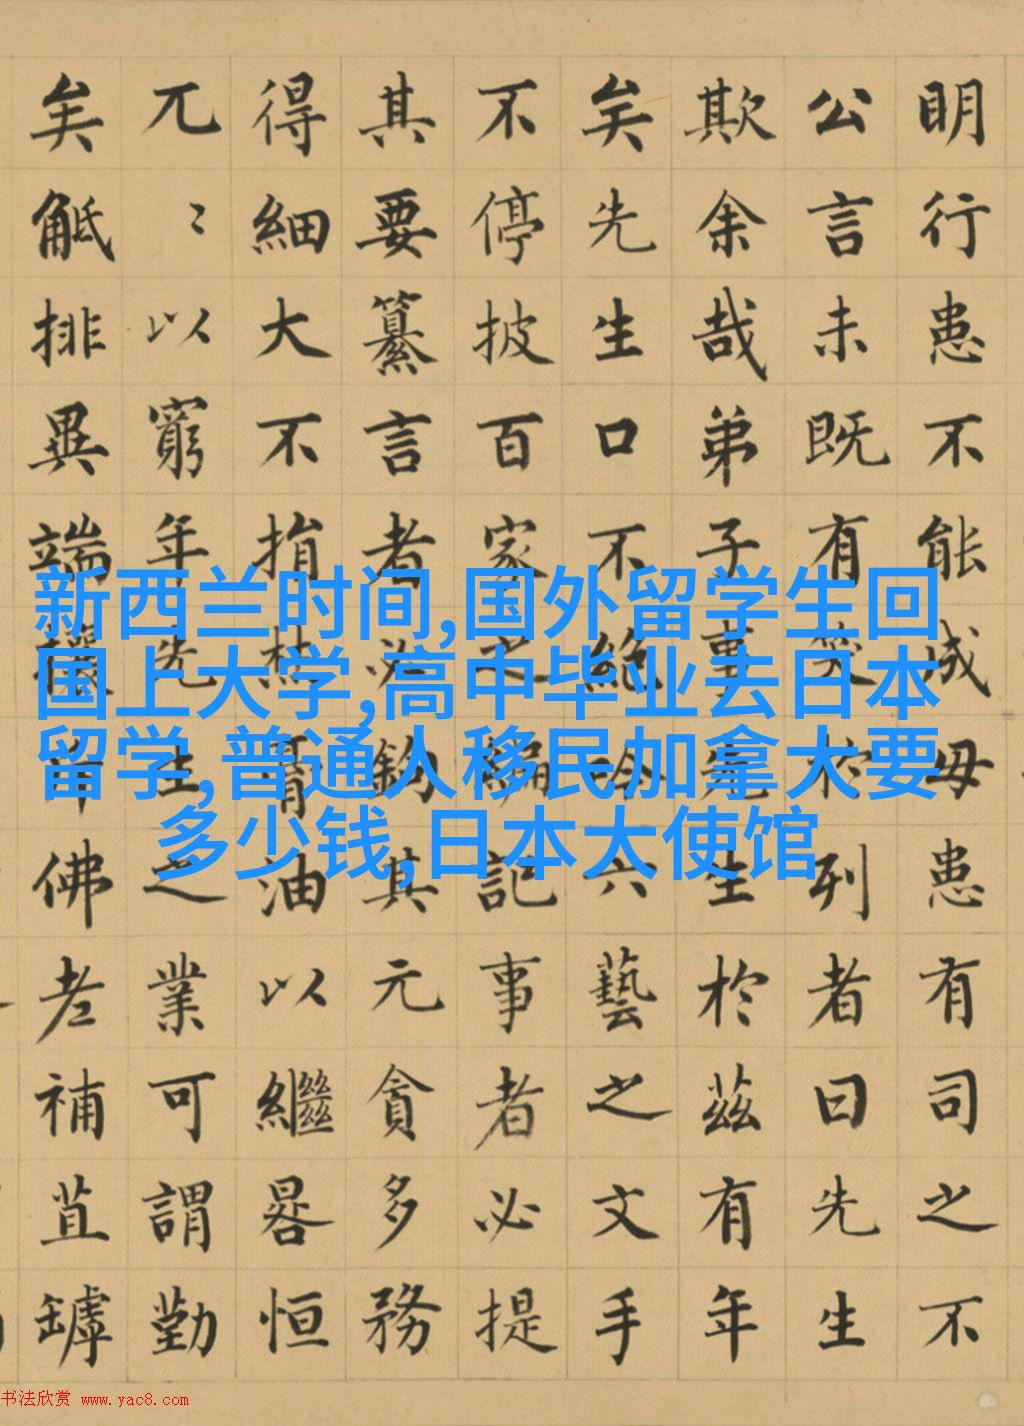 明行患不能成毋患有司之不
公言未既有笑於列者曰先生
欺余哉弟子事先生於茲有年
矣先生口不絶吟六藝之文手
不停披百家之編記事者必提
其要纂言者必鉤其元貪多務
得細大不捐焚膏油以繼晷恒
兀〻以窮年先生之業可謂勤
矣觝排異端攘斥佛老補苴罅
新西兰时间,国外留学生回
国上大学,高中毕业去日本
留学,普通人移民加拿大要
多少钱,日本大使馆
书法欣赏 www.yac8.com